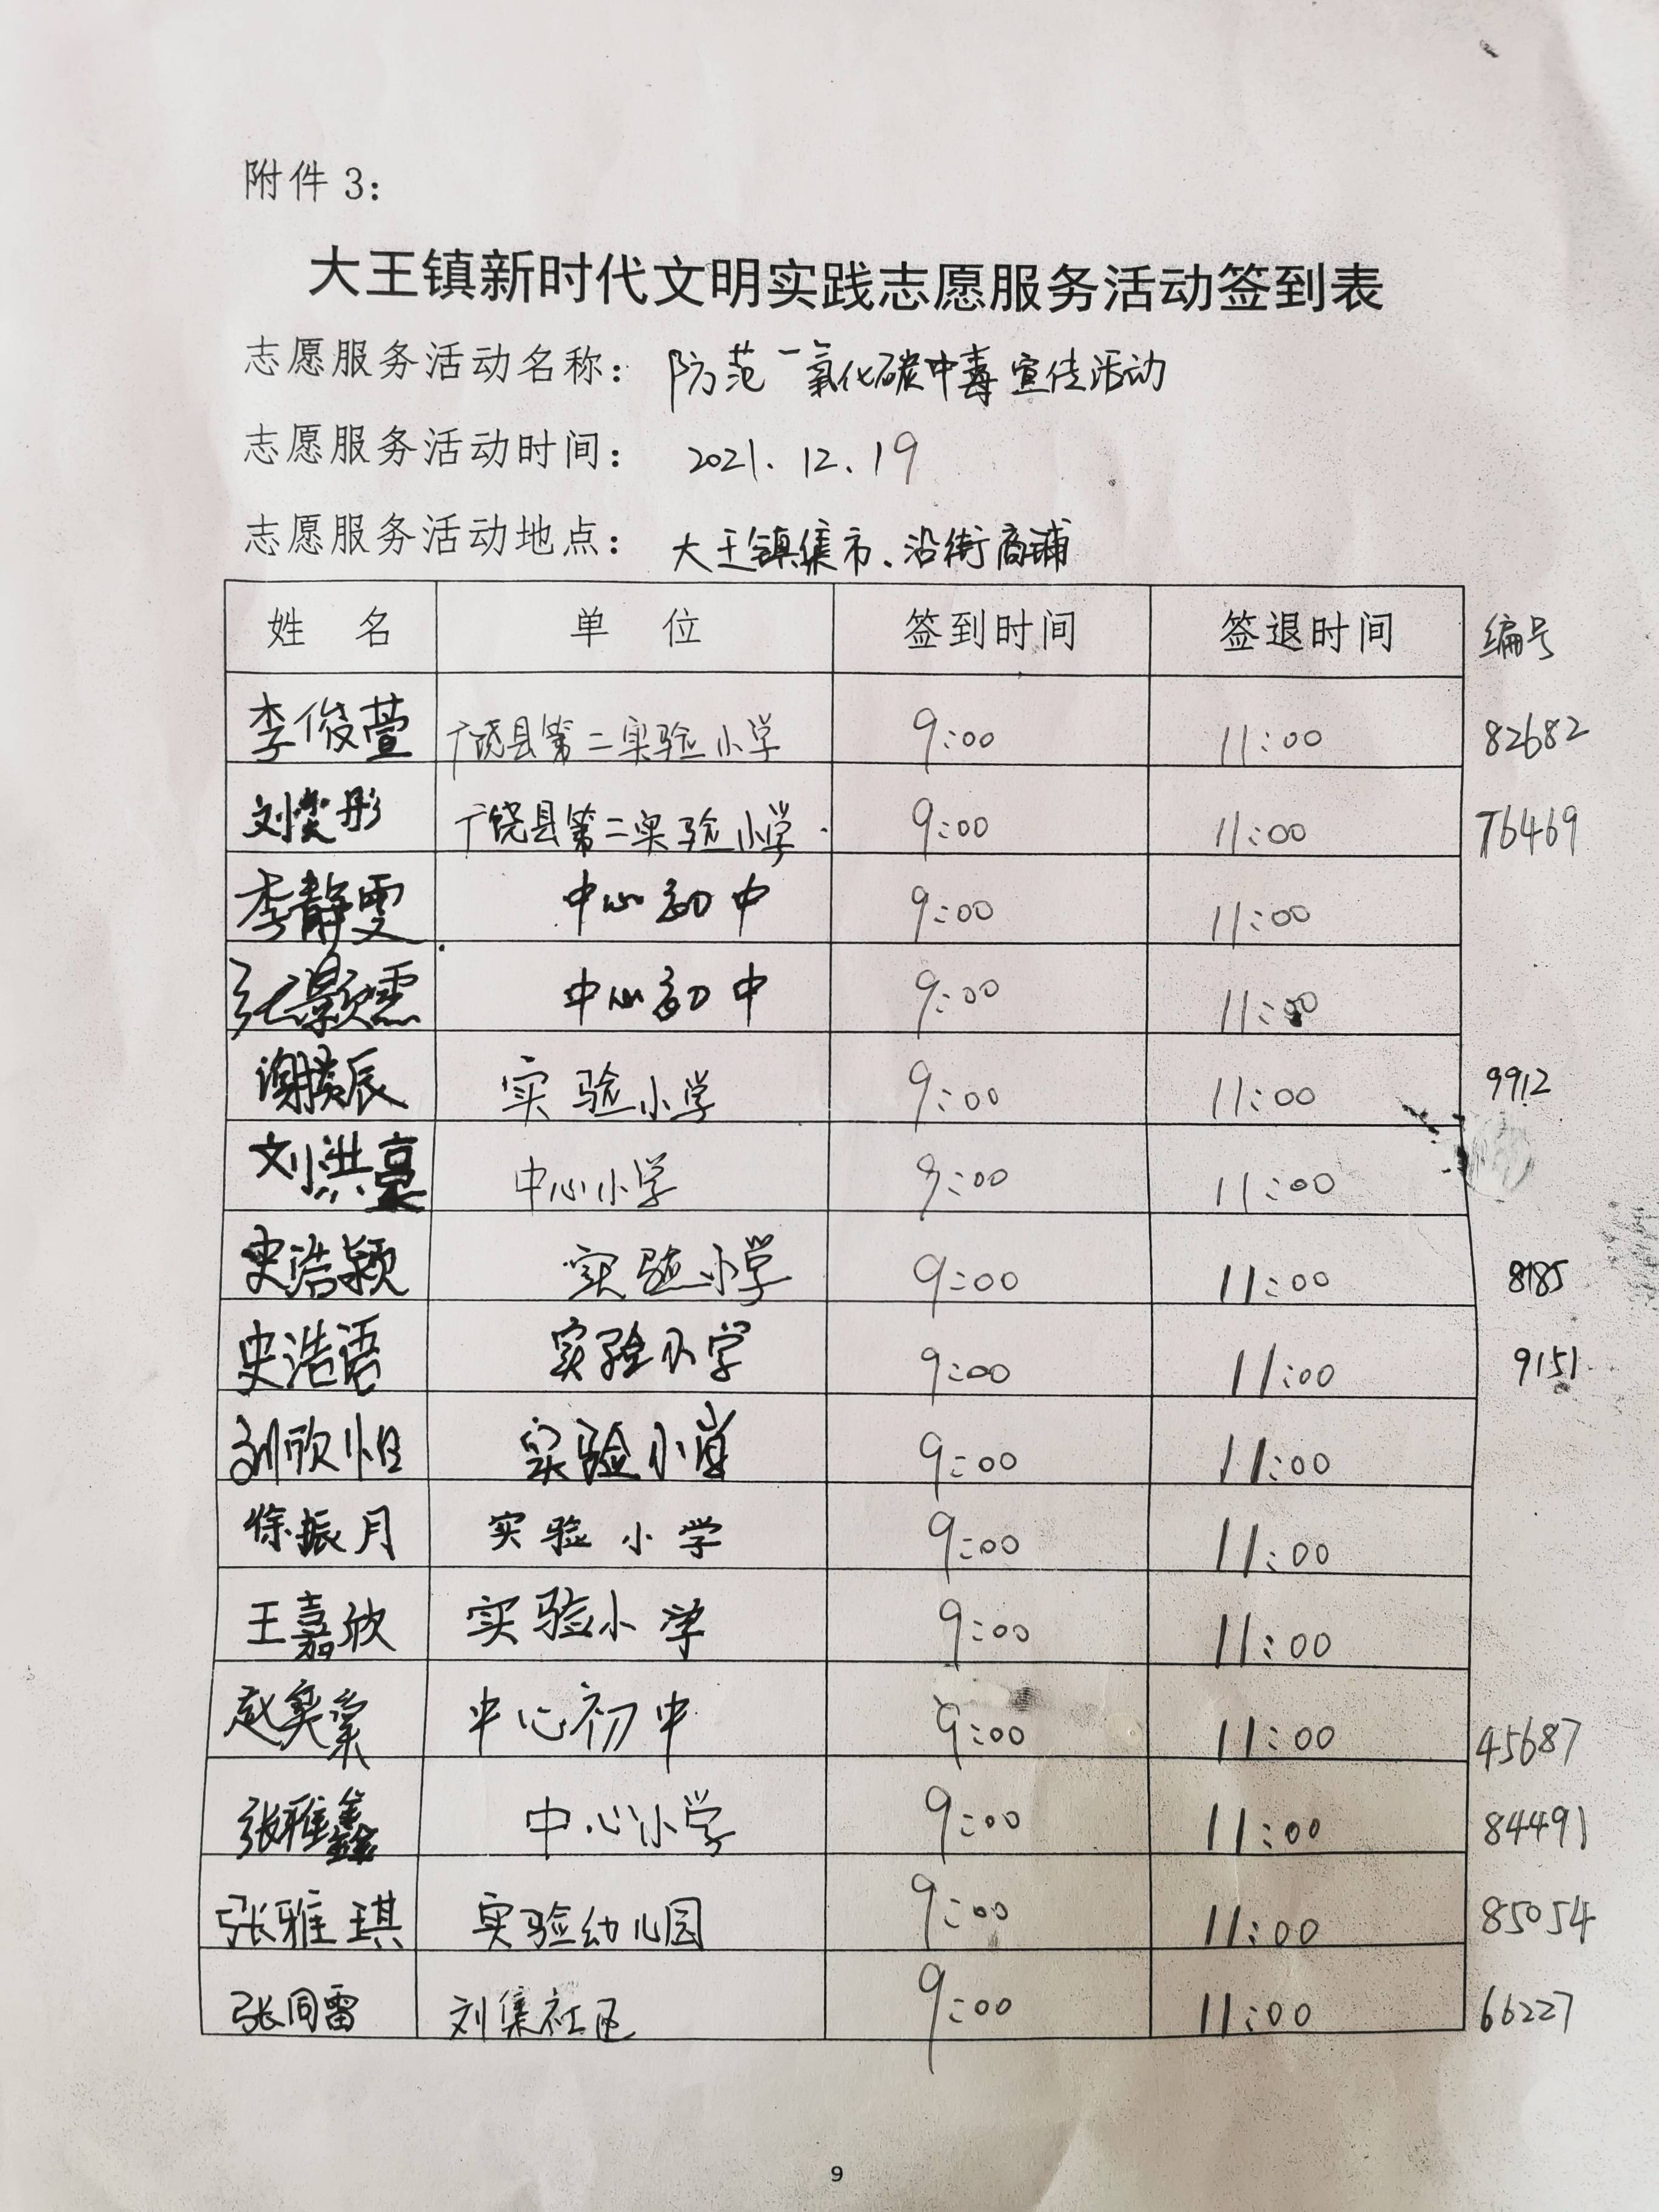 附件 3：
大王镇新时代文明实践志愿服务活动签到表
志愿服务活动名称： 防范一氧化碳中毒宣传活动
志愿服务活动时间： 2021.12.19
志愿服务活动地点： 大王镇集市、沿街商铺
姓 名 单 位 签到时间 签退时间 编号
李俊萱 广饶县第二实验小学 9:00 11:00 82682
刘奕彤 广饶县第二实验小学 9:00 11:00 76469
李静雯 中心初中 9:00 11:00
张颢 中心初中 9:00 11:00
谢 辰 实验小学 9:00 11:00 9912
刘洪 中心小学 9:00 11:00
史浩颖 实验小学 9:00 11:00 8185
史浩语 实验小学 9:00 11:00 9151
刘欣怡 实验小学 9:00 11:00
徐振月 实验小学 9:00 11:00
王嘉欣 实验小学 9:00 11:00
赵奕 中心初中 9:00 11:00 45687
张雅鑫 中心小学 9:00 11:00 84491
张雅琪 实验幼儿园 9:00 11:00 85054
张同雷 刘集社区 9:00 11:00 66227
9